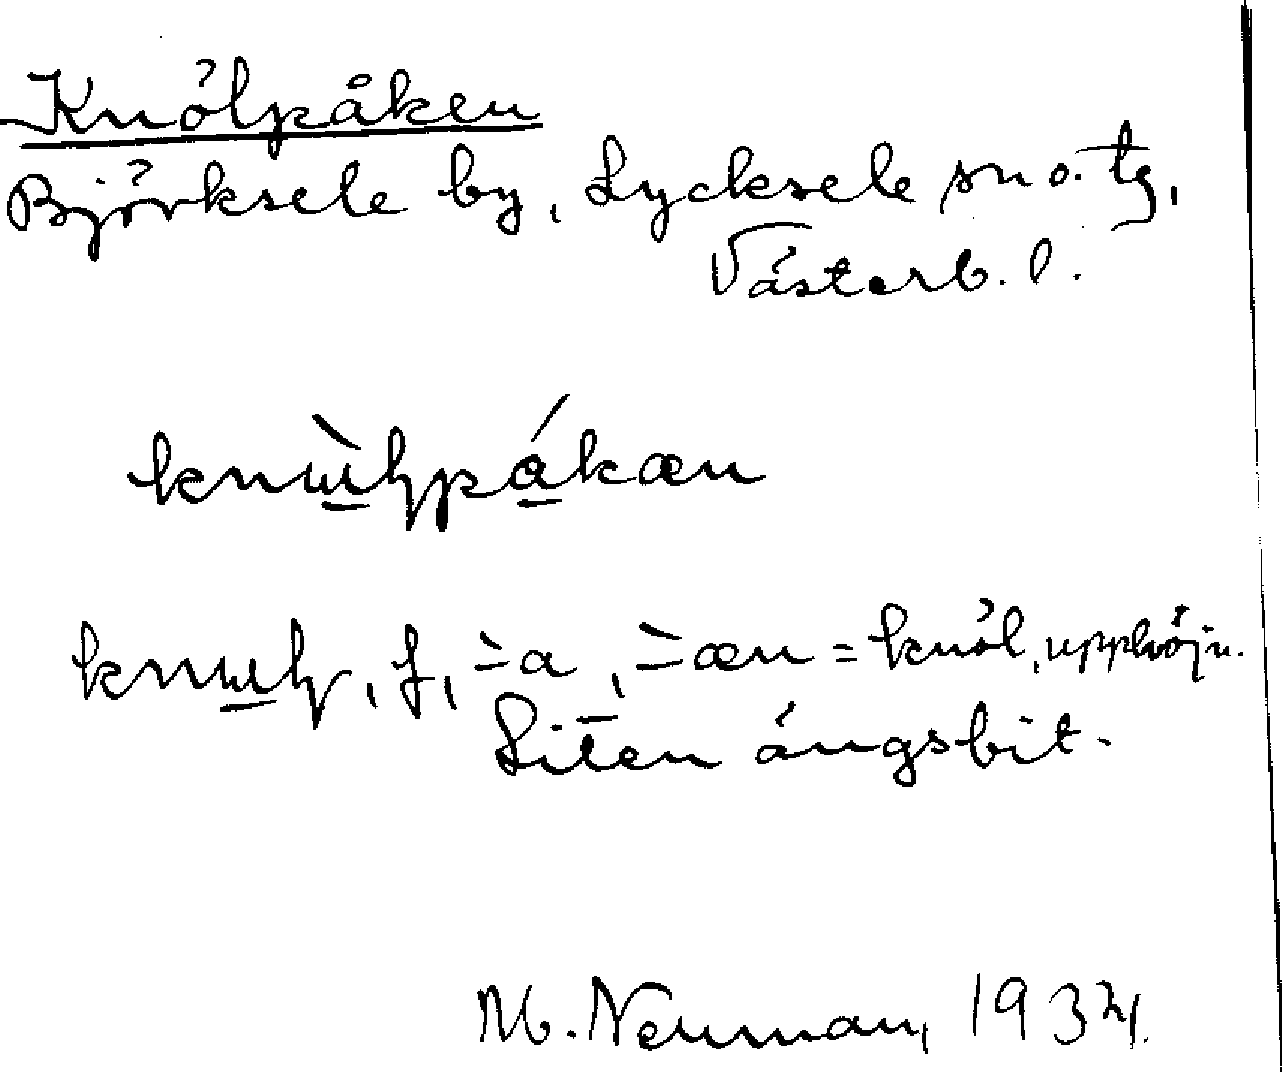 Knölpåken
Björksele by, Lycksele sn o. tg,
Västerb. l.
knɯ̀lpåkæn
knɯl, f, -̀a, -̀æn = knöl, upphöjn.
Liten ängsbit.
M. Neuman, 1934.